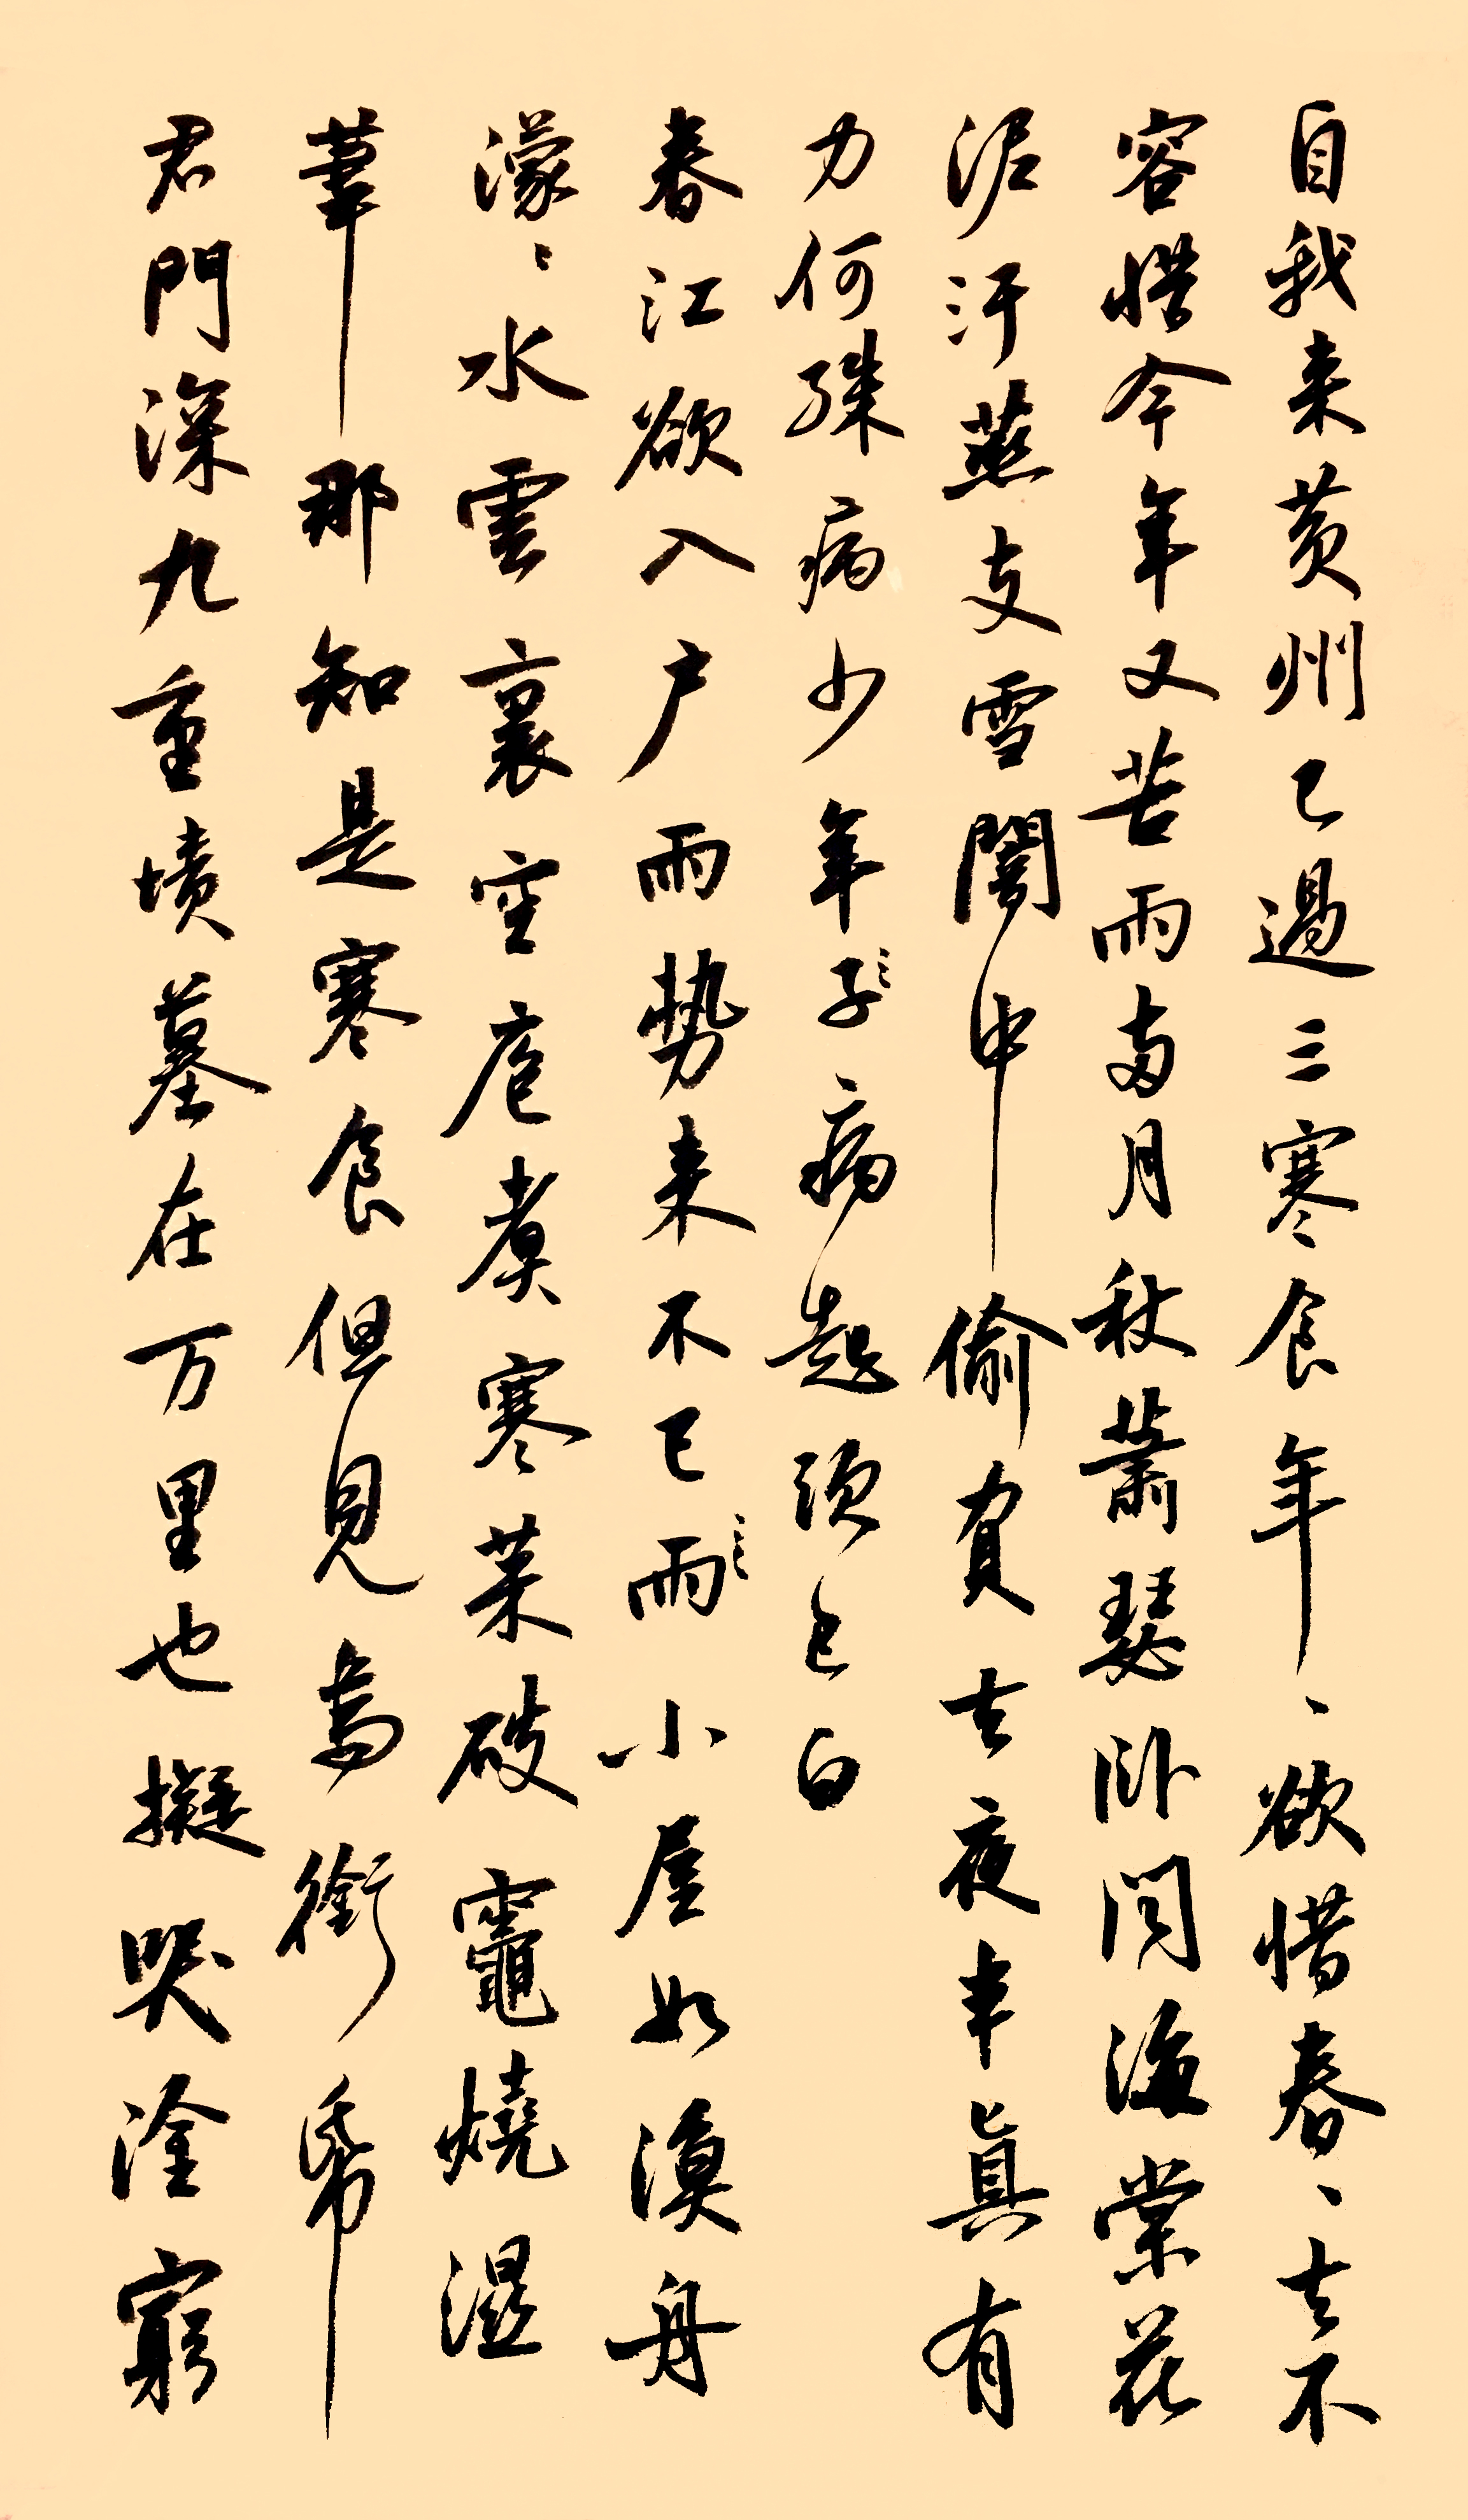 自我来黄州已過三寒食年、欲惜春、去不
容惜今年又苦雨两月秋蕭瑟卧聞海棠花
泥汙燕支雪闇中偷負去夜半真有
力何殊病少年子𠁼病起須已白
春江欲入户雨势来不已雨𠁼小屋如漁舟
濛、水雲裏空庖煮寒菜破竈燒濕
葦那知是寒食但見烏銜帋
君門深九重墳墓在万里也擬哭塗窮